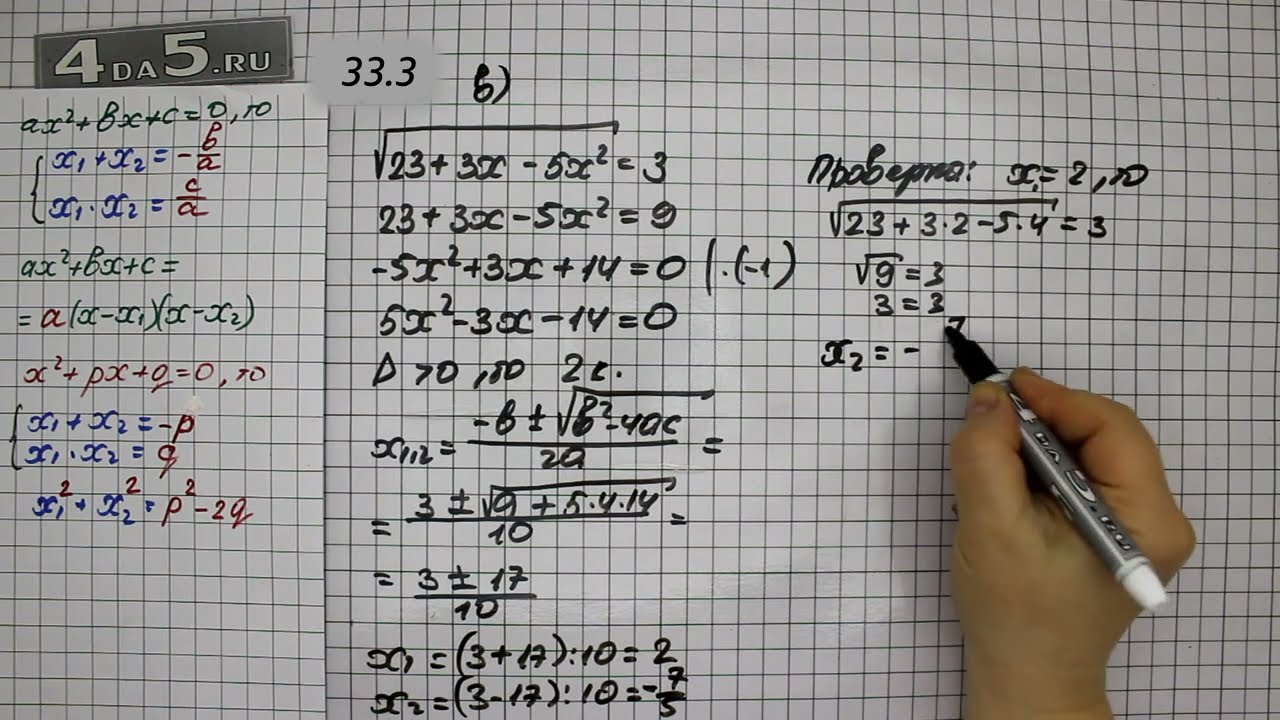 4DA5.RU
33.3
в)
ax²+вx+c=0, то
x₁+x₂=-в/a
x₁·x₂=c/a
ax²+вx+c=
=a(x-x₁)(x-x₂)
x²+px+q=0, то
x₁+x₂=-p
x₁·x₂=q
x₁²+x₂²=p²-2q
√(23+3x-5x²)=3
23+3x-5x²=9
-5x²+3x+14=0 |·(-1)
5x²-3x-14=0
D>0, то 2 к.
x₁,₂=(-в±√(в²-4ac))/2a=
=(3±√(9+5·4·14))/10=
=(3±17)/10
x₁=(3+17):10=2
x₂=(3-17):10=-7/5
Проверка: x₁=2, то
√(23+3·2-5·4)=3
√9=3
3=3
x₂=-7